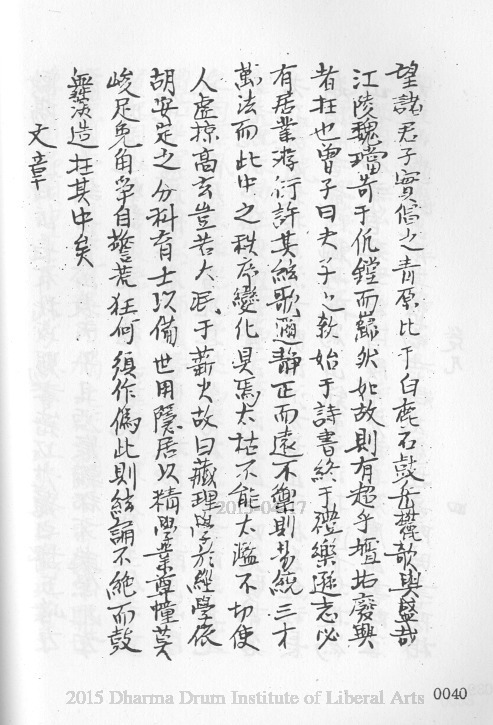 望諸君子實倡之青原比于白鹿石鼓岳麓歌與盛哉
江陵魏璫苛于仇鏜而巋然如故則有超乎壇坫廢興
者在也曾子曰夫子之教始于詩書終于禮樂遜志必
有居業游衍許其絃歌適靜正而遠不禦則易統三才
萬法而此中之秩序變化具焉太枯不能太濫不切使
人虛掠高玄豈若大泯于薪火故曰藏理學於經學依
胡安定之分科育士以備世用隱居以精學業尊幢莫
峻足免角爭自誓荒狂何須作偽此則絃誦不絕而鼓
舞深造在其中矣
文章
2015-04-17
2015 Dharma Drum Institute of Liberal Arts 0040